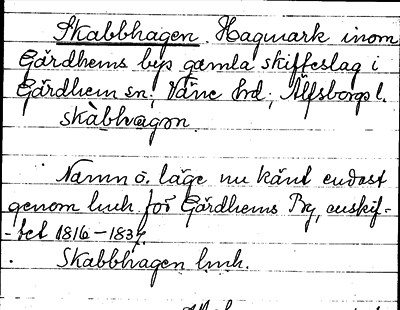 Skabbhagen. Hagmark inom
Gärdhems bys gamla skifteslag i
Gärdhem sn; Väne hrd; Älfsborgs l.
skàbhagən.
Namn o. läge nu känt endast
genom lmh. för Gärdhems By, enskif-
-tet 1816-1837.
Skabbhagen lmh.